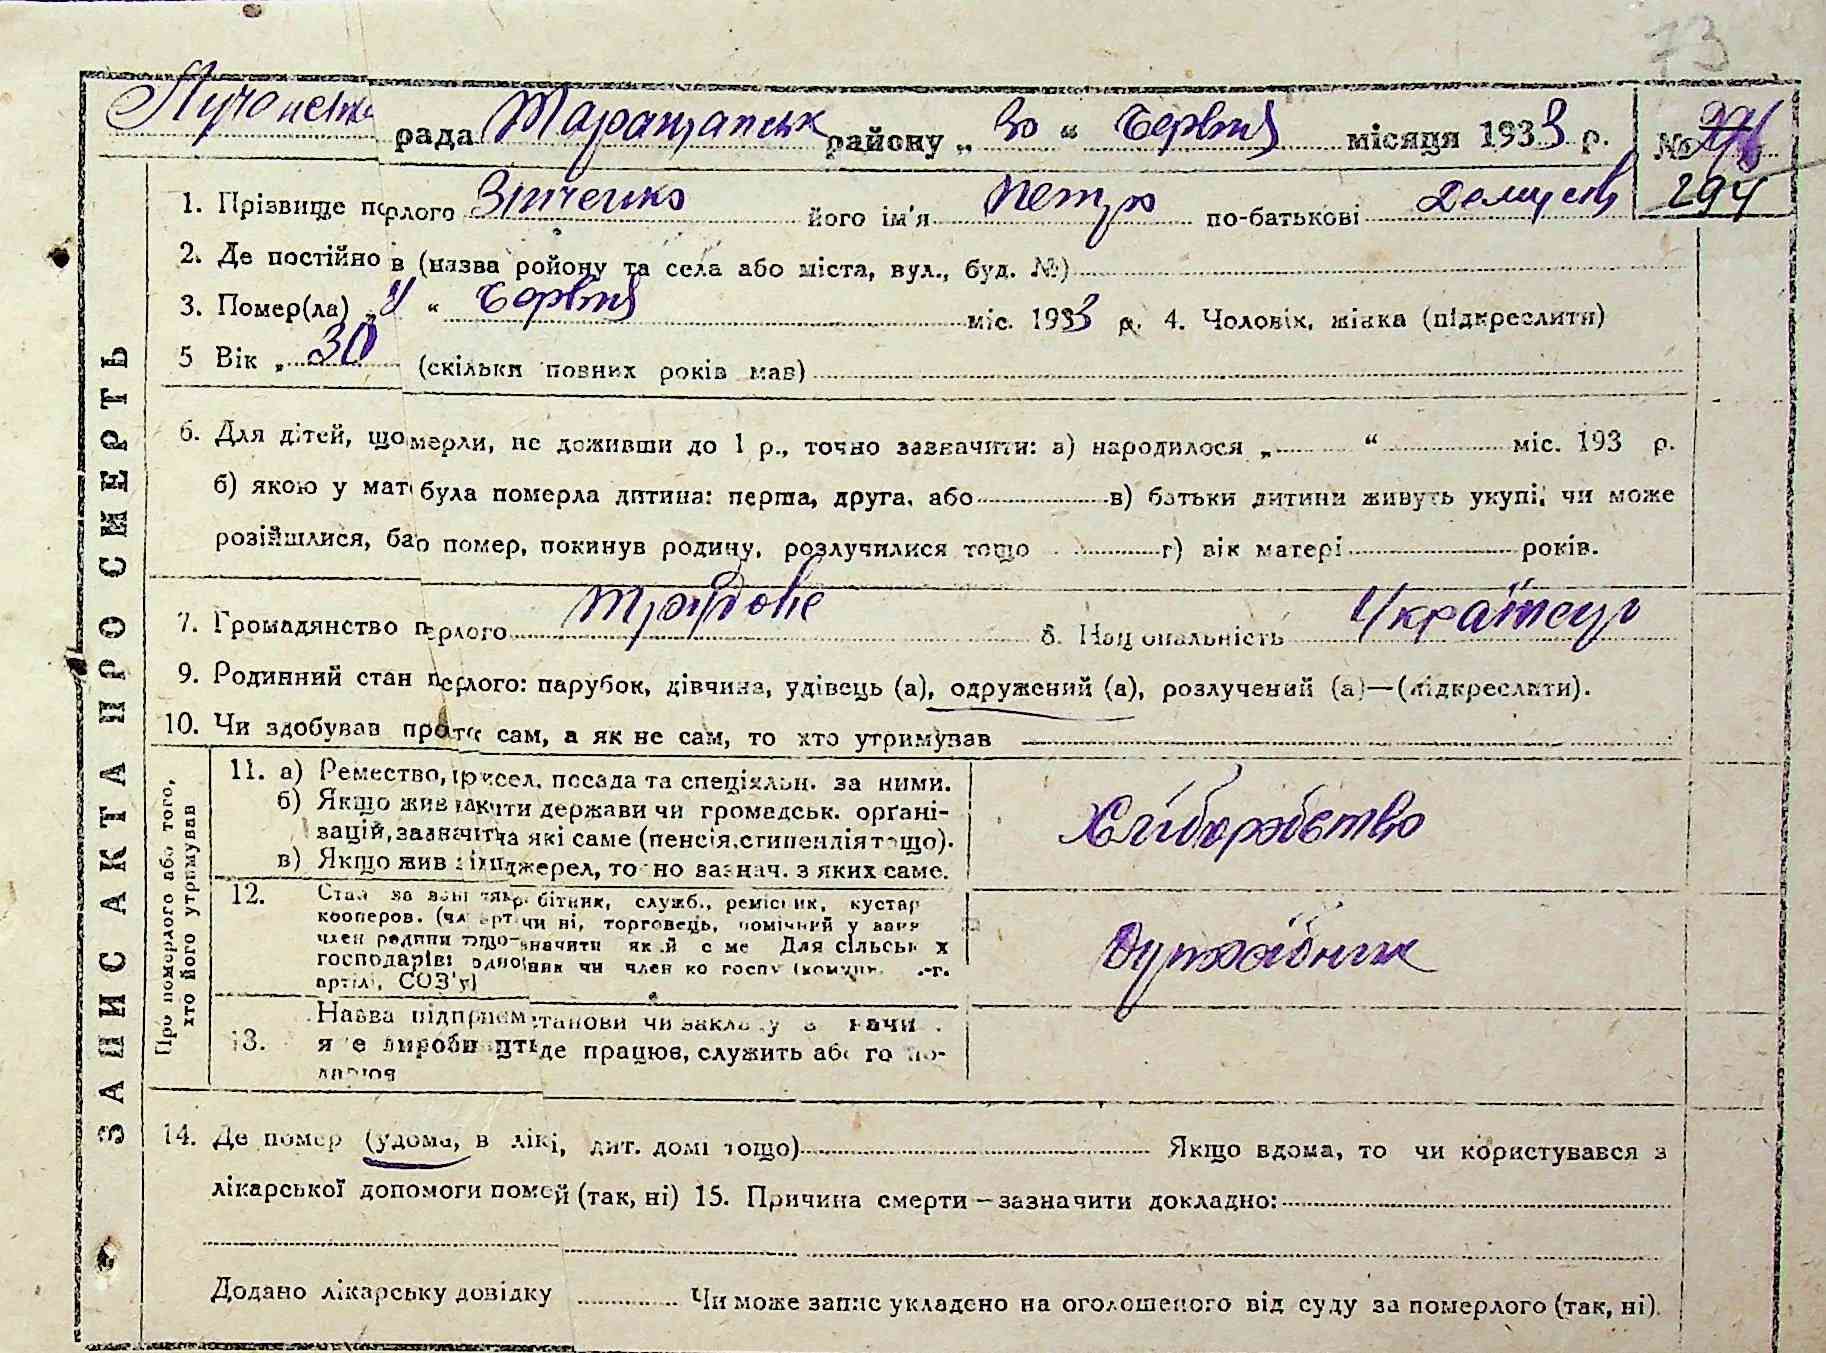 73
рада Таращанськ району „ 30 “ Червня місяця 1933 р. №
294
1. Прізвище по рлого Зінченко його ім'я Петро по-батькові
2. Де постійно в (назва ройону та села або міста, вул., буд. №)
3. Помер(ла) „ “ Червня міс. 1933 р. 4. Чоловік, жінка (підкреслити)
5 Вік „ 30 (скільки повних років мав)
6. Для дітей, що мерли, не доживши до 1 р., точно зазначити: а) народилося „ “ міс. 193 р.
б) якою у мат була померла дитина: перша, друга, або в) батьки дитини живуть укупі, чи може
розійшлися, ба о помер, покинув родину, розлучилися тощо г) вік матері років.
7. Громадянство п ерлого трудове 8. Нац ональність Українець
9. Родинний стан п ерлого: парубок, дівчина, удівець (а), одружений (а), розлучений (а)—(підкреслити).
10. Чи здобував про та сам, а як не сам, то хто утримував
ЗАПИС АКТА ПРО СМЕРТЬ
Про померлого або того,
хто його утримував
11. а) Ремество, посада та спеціяльн. за ними.
б) Якщо жив держави чи громадськ. органі-
зацій, зазначит на які саме (пенсія, стипендія тощо).
в) Якщо жив джерел, то но зазнач. з яких саме.
Хліборобство
12. Стан бітник, служб., реміс ик, кустар
кооперов. чи ні, торговець, помічний у
член родини тощо— значити як й с ме Для сільськ х
господарів: одно ник чи член ко госпу -г.
артілі, СОЗ'у)
13. Назва підприєм станови чи закла у
де працюв, служить аб
14. Де помер (удома, в лік і, дит. домі тощо) Якщо вдома, то чи користувався з
лікарської допомоги поме й (так, ні) 15. Причина смерти — зазначити докладно:
Додано лікарську довідку Чи може запис укладено на оголошеного від суду за померлого (так, ні).